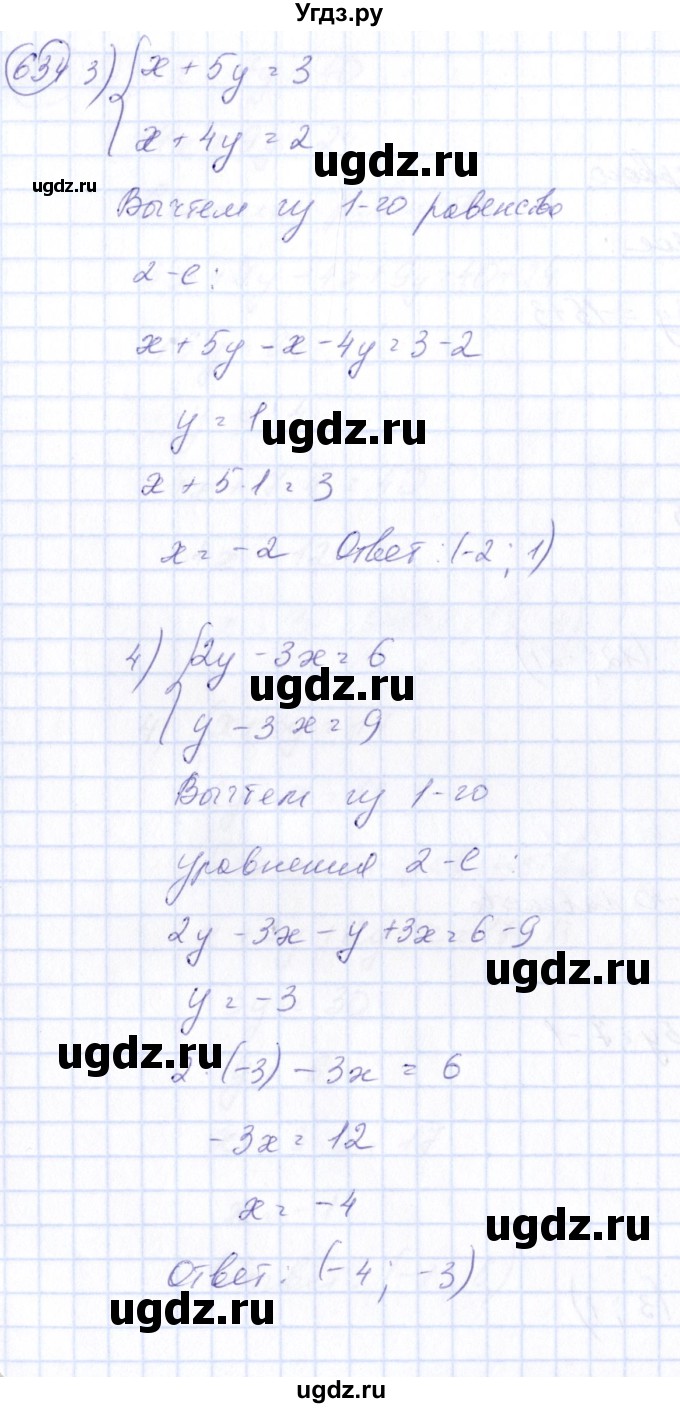 Угдз.ру
634 3) { x + 5y = 3
x + 4y = 2
ugdz.ru
ugdz.ru
Вычтем из 1-го равенство
2-е:
x + 5y - x - 4y = 3 - 2
y = 1
ugdz.ru
x + 5·1 = 3
x = -2 Ответ: (-2; 1)
4) { 2y - 3x = 6
ugdz.ru
y - 3x = 9
Вычтем из 1-го
уравнения 2-е:
2y - 3x - y + 3x = 6 - 9
ugdz.ru
y = -3
ugdz.ru
2·(-3) - 3x = 6
-3x = 12
x = -4
ugdz.ru
Ответ: (-4; -3)
ugdz.ru
ugdz.ru